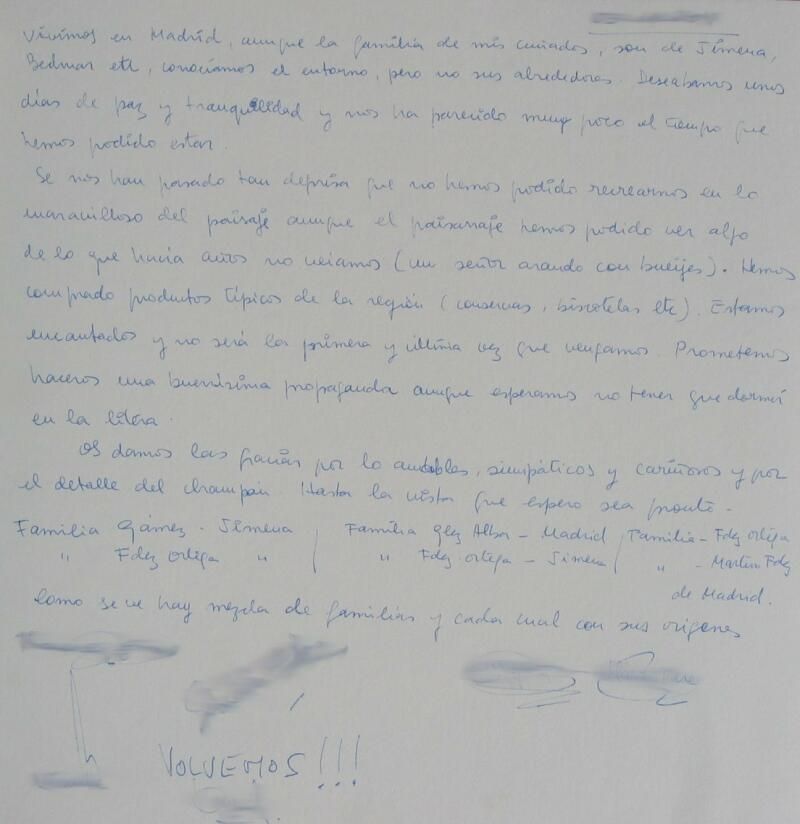 Vivimos en Madrid, aunque la familia de mis cuñados, son de Jimena,
Bedmar etc, conocíamos el entorno, pero no sus alrededores. Deseabamos unos
días de paz y tranquilidad y nos ha parecido muy poco el tiempo que
hemos podido estar.
Se nos han pasado tan deprisa que no hemos podido recrearnos en lo
maravilloso del paisaje aunque el paisanaje hemos podido ver algo
de lo que hacía años no veiamos (un señor arando con bueyes). Hemos
comprado productos típicos de la región (conservas, biscotelas etc). Estamos
encantados y no será la primera y última vez que vengamos. Prometemos
haceros una buenísima propaganda aunque esperamos no tener que dormir
en la litera.
Os damos las gracias por lo amables, simpáticos y cariñosos y por
el detalle del champán. Hasta la vista que espero sea pronto.
Familia Gámez - Jimena / Familia Glez Alba - Madrid / Familia - Fdez Ortega
" Fdez Ortega " / " Fdez Ortega - Jimena / " - Martin Fdez
de Madrid.
Como se ve hay mezcla de familias y cada cual con sus orígenes
VOLVEMOS!!!